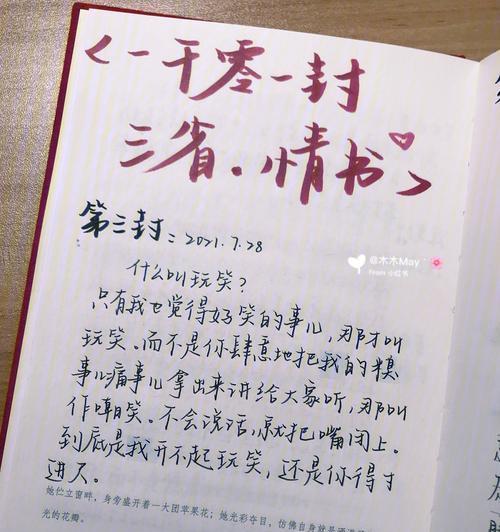 <一千零一封
三省·情书>
第三封:2021.7.28
@木木May
From 小红书
什么叫玩笑?
只有我也觉得好笑的事儿,那才叫
玩笑。而不是你肆意地把我的糗
事儿痛事儿拿出来讲给大家听,那叫
作嘲笑。不会说话,就把嘴闭上。
到底是我开不起玩笑,还是你得寸
进尺。
她伫立窗畔,身旁盛开着一大团苹果花;她光彩夺目,仿佛自身就是
光的花瓣。